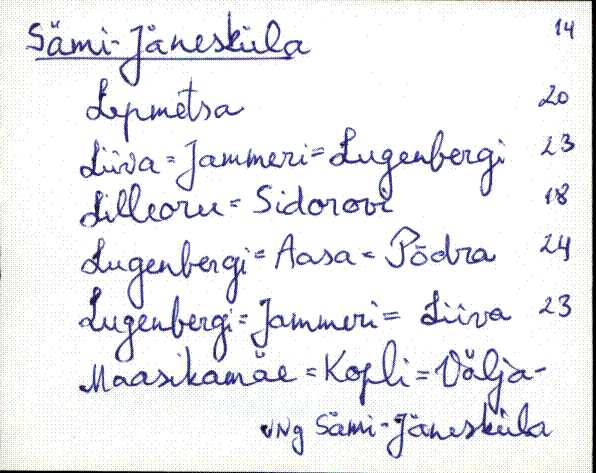 Sämi-Jänesküla 14
Lepmetsa 20
Liiva = Jammeri = Lugenbergi 23
Lilleoru = Sidorovi 18
Lugenbergi = Aasa = Põdra 24
Lugenbergi = Jammeri = Liiva 23
Maasikamäe = Kopli = Välja-
vNg Sämi-Jänesküla